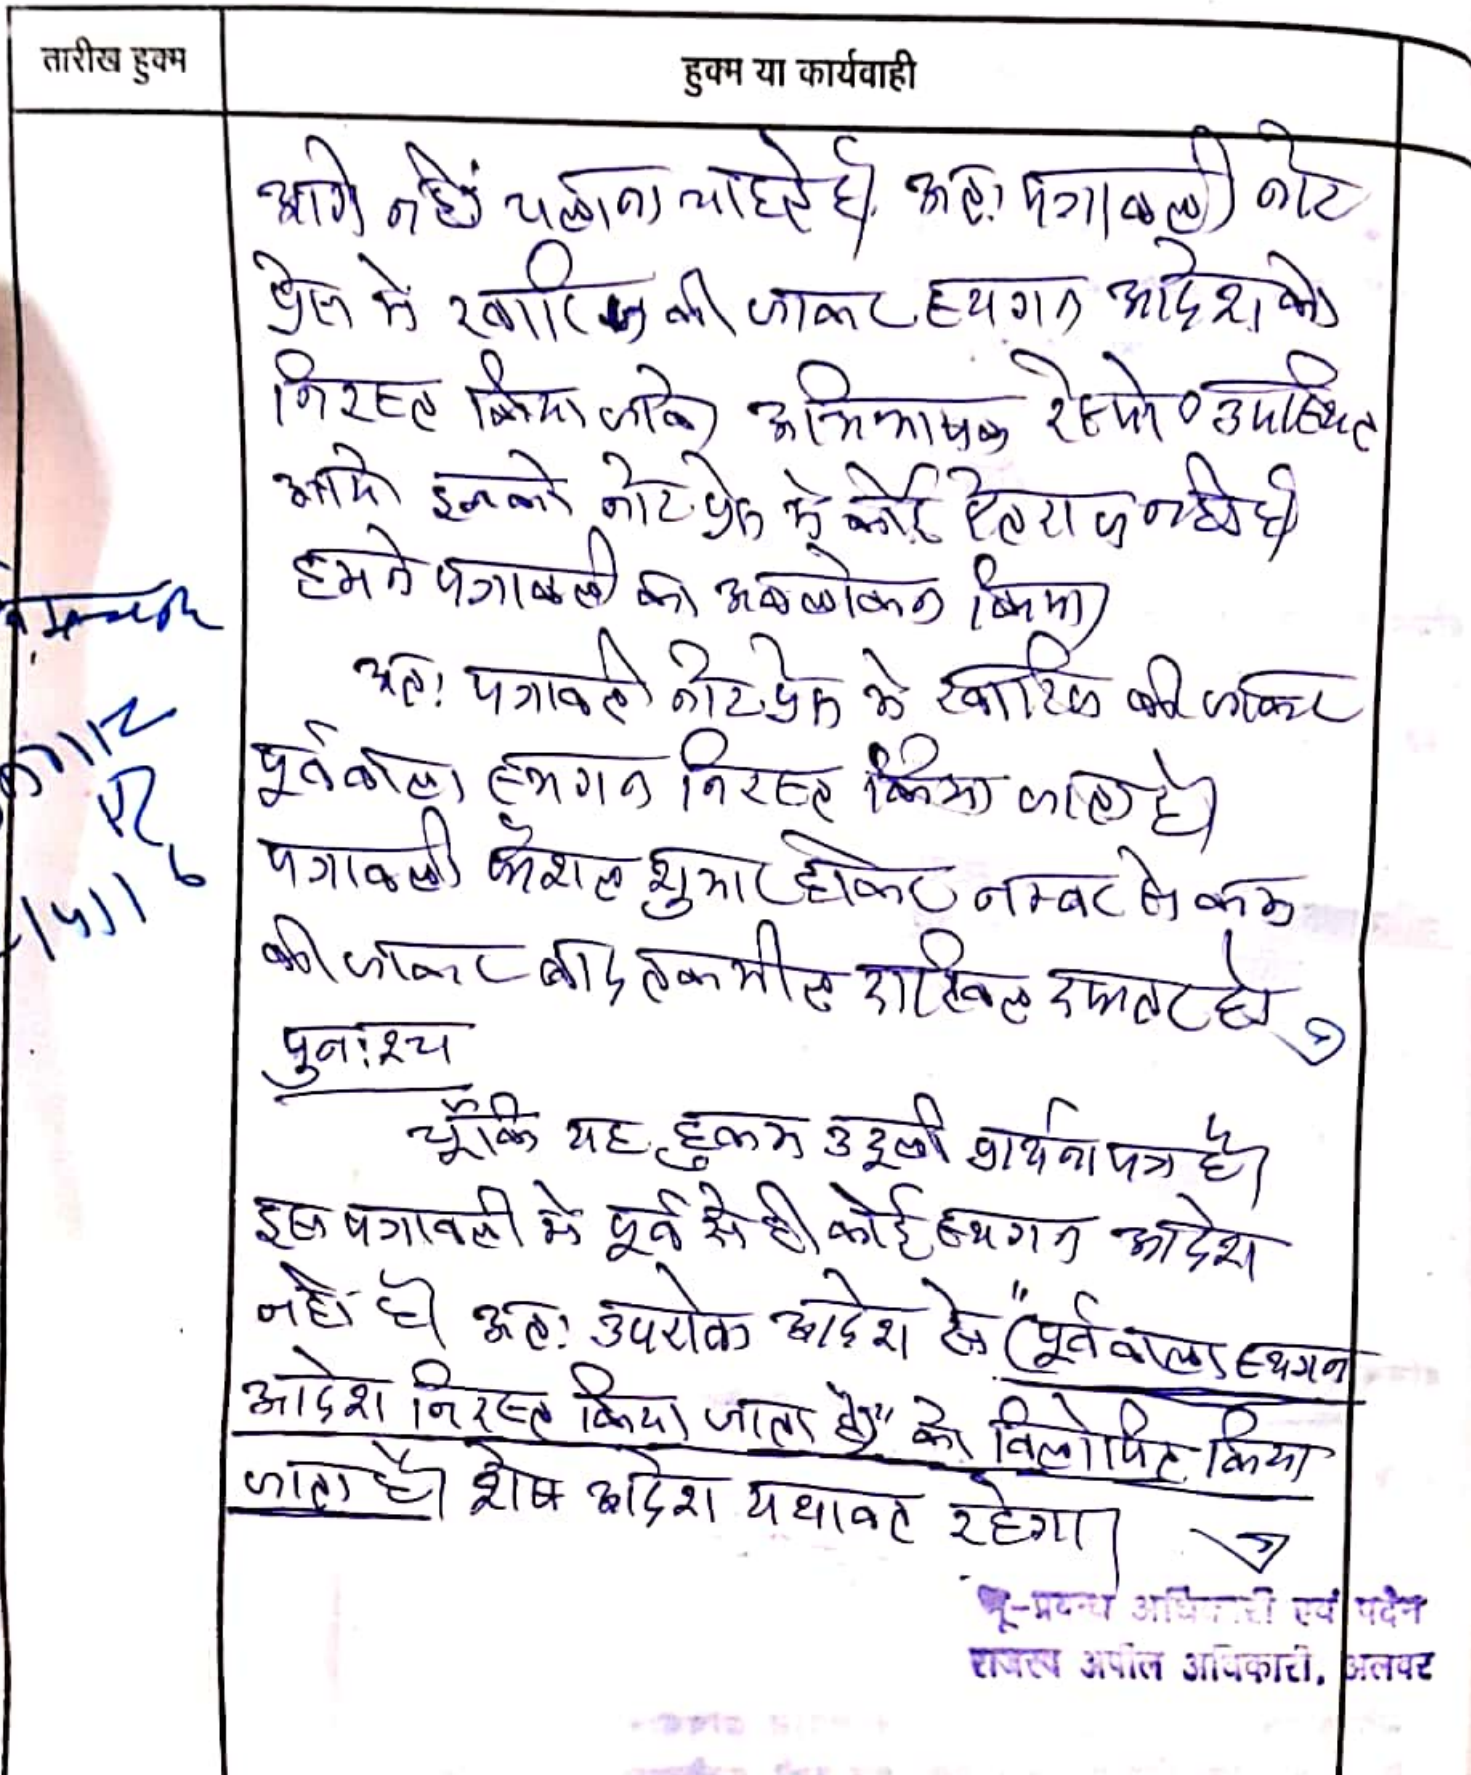 तारीख हुक्म
हुक्म या कार्यवाही
आगे नहीं चलाना चाहते है। अतः पत्रावली नोट
प्रेस में खारिज की जाकर स्थगन आदेश को
निरस्त किया जावे। अभिभाषक रेस्पो० उपस्थित
आये इनको नोट प्रेस में कोई ऐतराज नहीं है।
हमने पत्रावली का अवलोकन किया।
अतः पत्रावली नोट प्रेस में खारिज की जाकर
पूर्व वाला स्थगन निरस्त किया जाता है।
पत्रावली फैशल शुमार होकर नम्बर से कम
की जाकर बाद तकमील दाखिल दफ्तर हो।
पुनःश्च
चूँकि यह हुकम उदूली प्रार्थना पत्र है।
इस पत्रावली में पूर्व से ही कोई स्थगन आदेश
नहीं है। अतः उपरोक्त आदेश से "पूर्व वाला स्थगन
आदेश निरस्त किया जाता है" को विलोपित किया
जाता है। शेष आदेश यथावत रहेगा।
भू-प्रबन्ध अधिकारी एवं पदेन
राजस्व अपील अधिकारी, अलवर